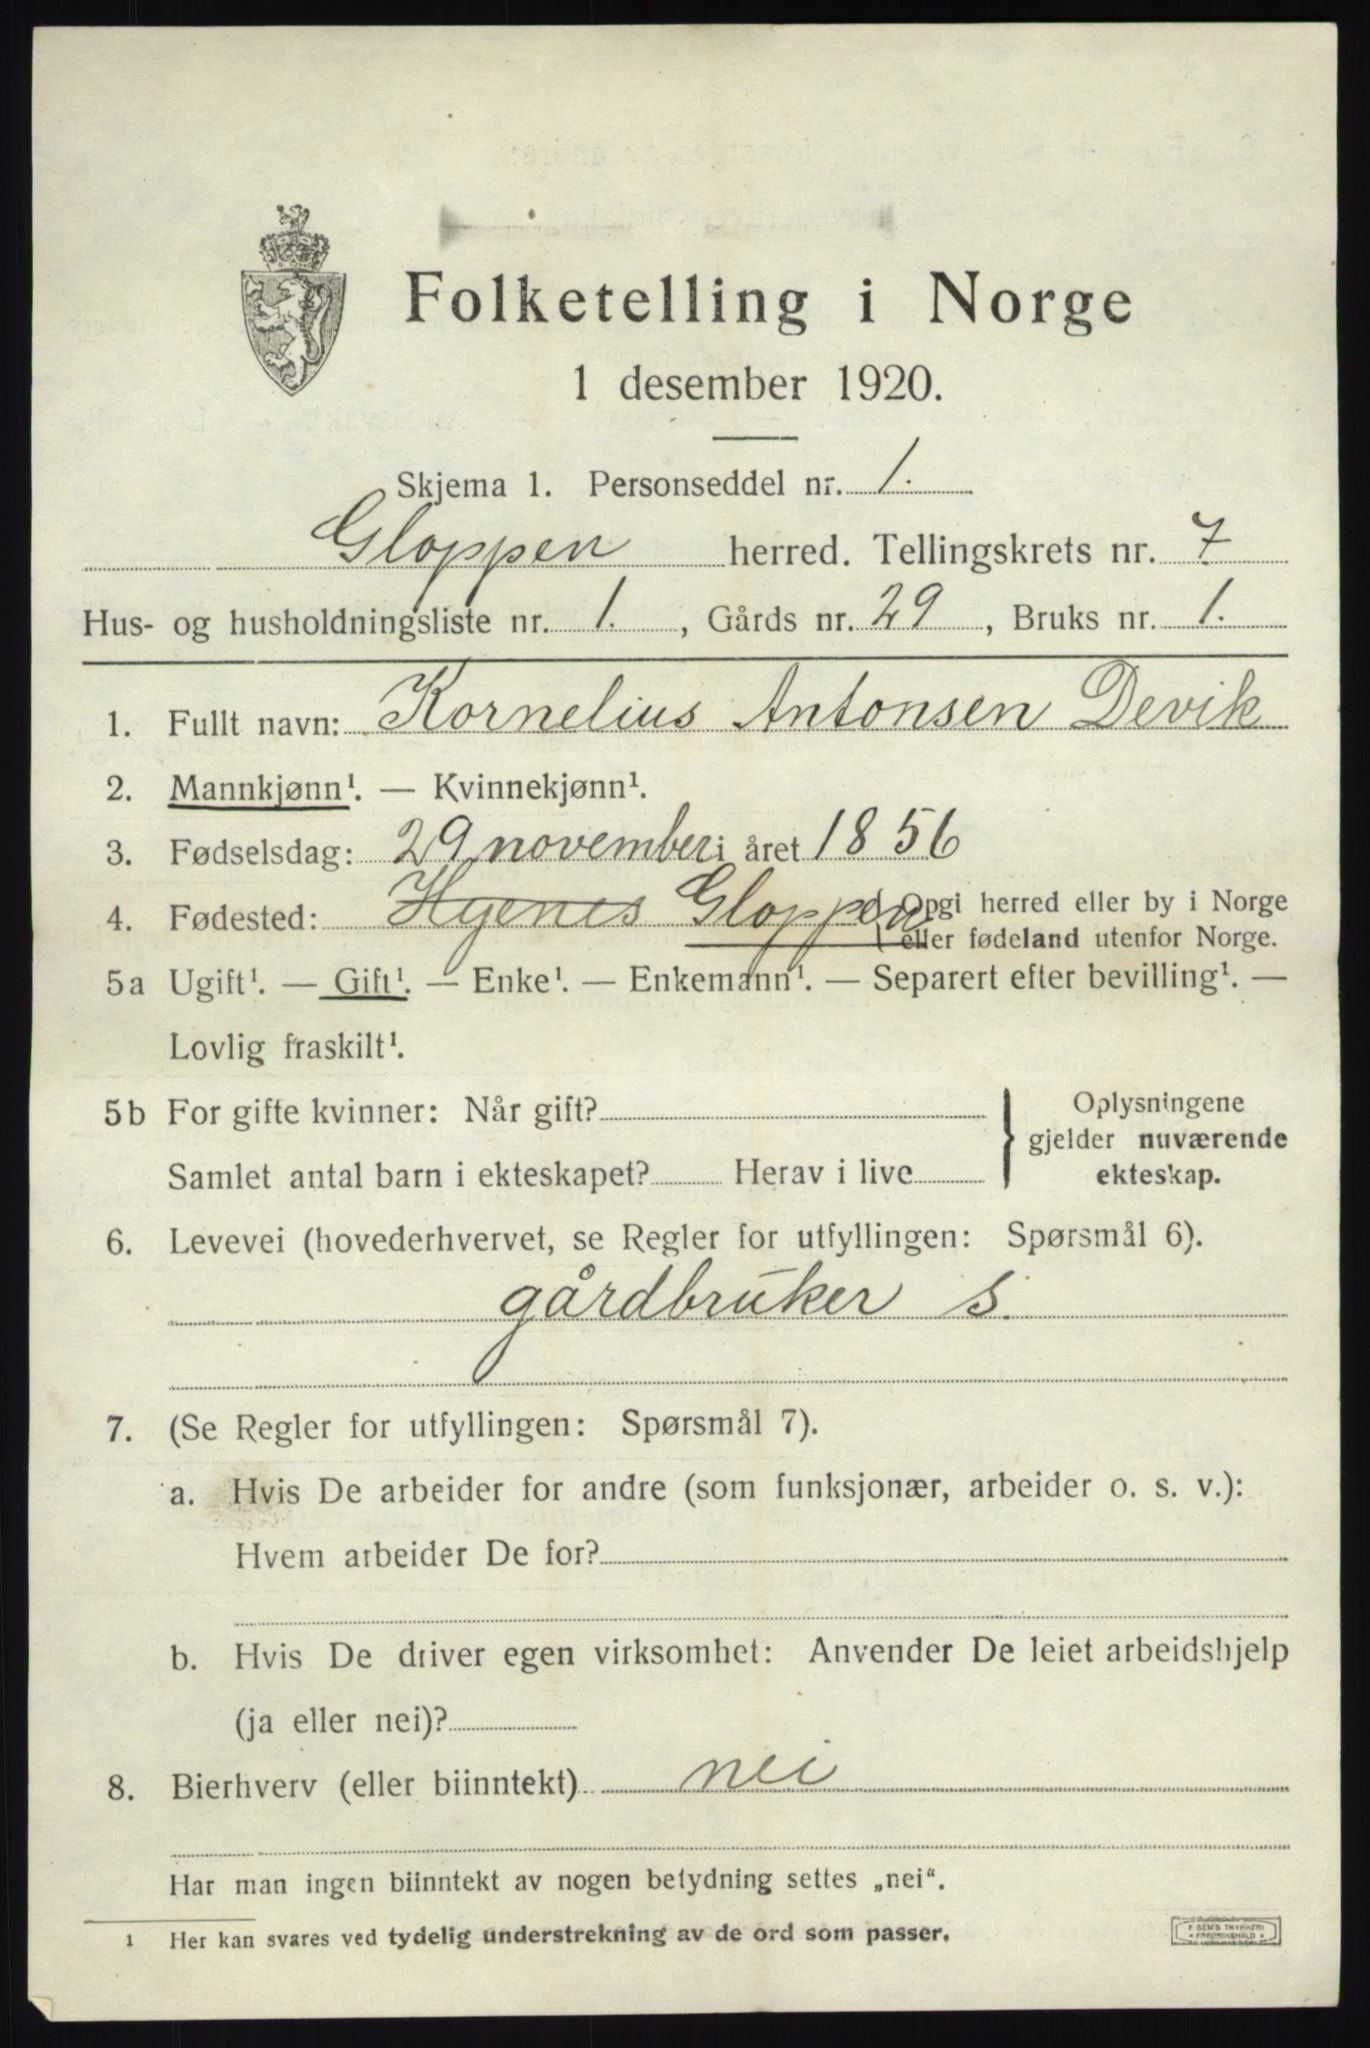 Folketelling i Norge
1 desember 1920.
Skjema 1. Personseddel nr. 1.
Gloppen herred. Tellingskrets nr. 7
Hus- og husholdningsliste nr. 1. , Gårds nr. 29 , Bruks nr. 1.
1. Fullt navn: Kornelius Antonsen Devik
2. Mannkjønn¹. — Kvinnekjønn¹.
3. Fødselsdag: 29 november i året 1856
4. Fødested: Hyenes Gloppen { Opgi herred eller by i Norge
eller fødeland utenfor Norge.
5a Ugift¹. — Gift¹. — Enke¹. — Enkemann¹. — Separert efter bevilling¹. —
Lovlig fraskilt¹.
5b For gifte kvinner: Når gift? } Oplysningene
gjelder nuværende
Samlet antal barn i ekteskapet? Herav i live ekteskap.
6. Levevei (hovederhvervet, se Regler for utfyllingen: Spørsmål 6).
gårdbruker s.
7. (Se Regler for utfyllingen: Spørsmål 7).
a. Hvis De arbeider for andre (som funksjonær, arbeider o. s. v.):
Hvem arbeider De for?
b. Hvis De driver egen virksomhet: Anvender De leiet arbeidshjelp
(ja eller nei)?
8. Bierhverv (eller biinntekt) nei
Har man ingen biinntekt av nogen betydning settes „nei“.
¹ Her kan svares ved tydelig understrekning av de ord som passer.
F SEM'S TRYKKERI
FREDRIKSHALD